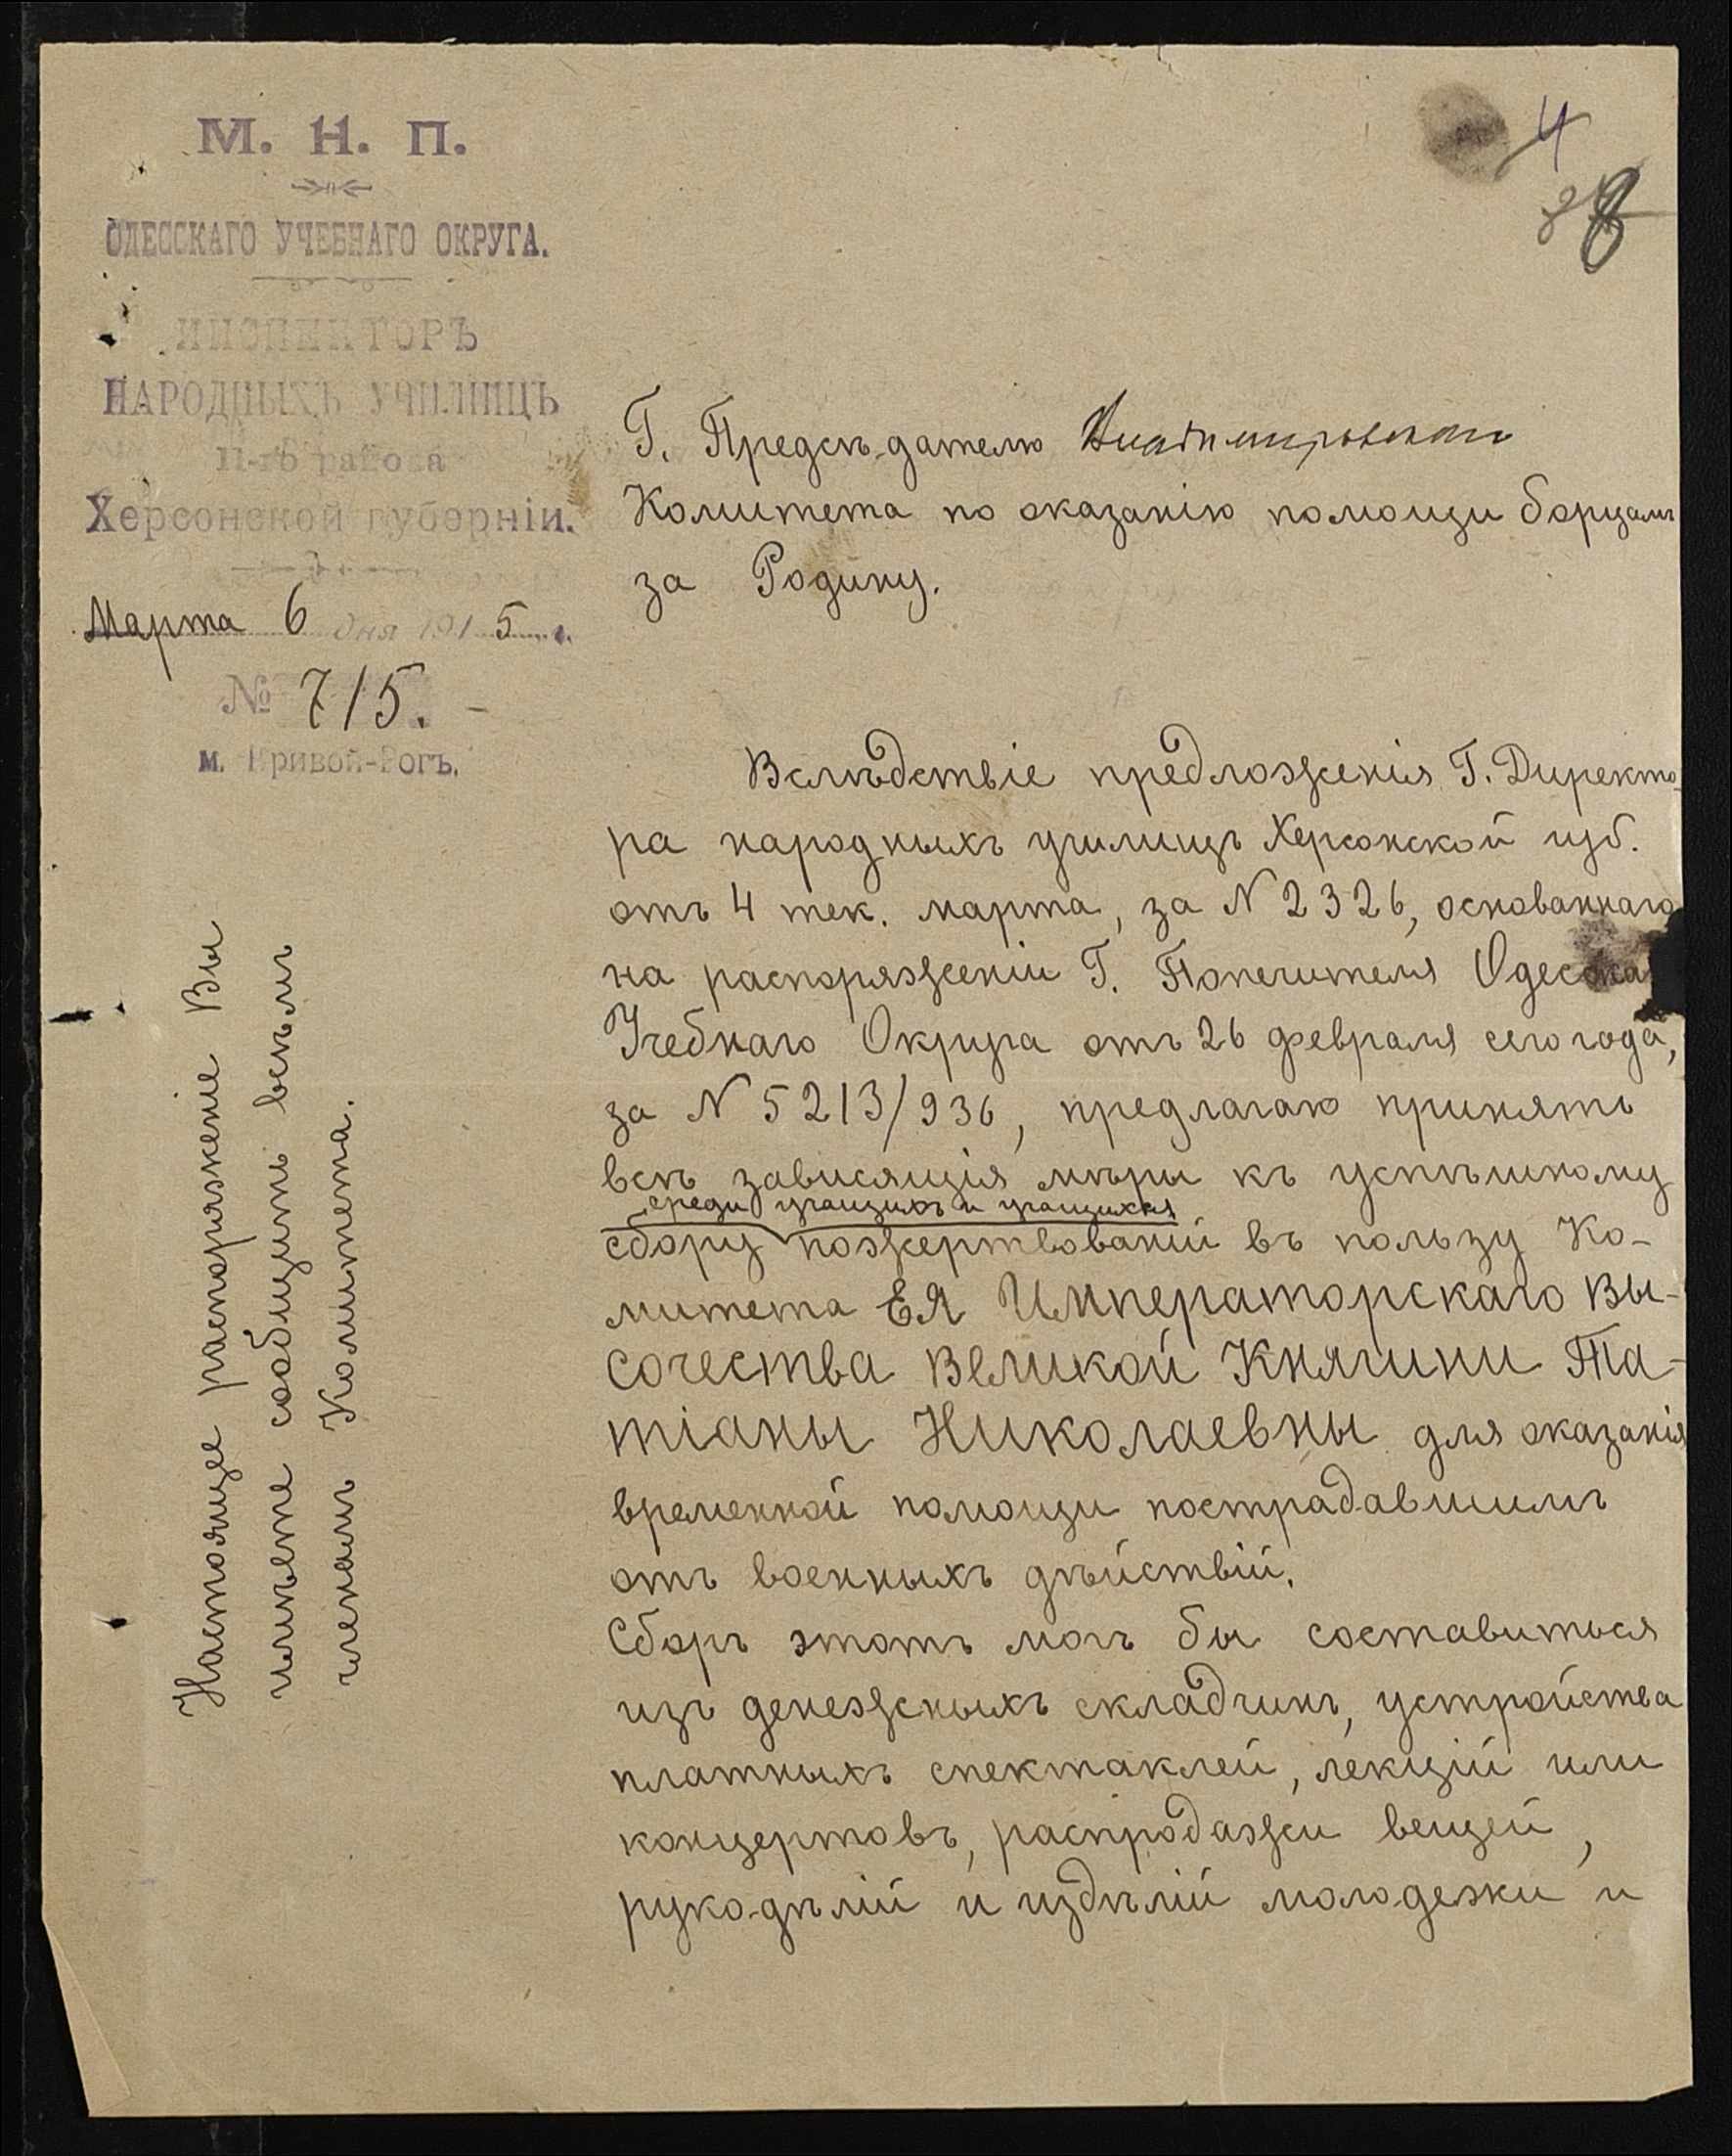 М. Н. П.
ОДЕССКАГО УЧЕБНАГО ОКРУГА.
ИНСПЕКТОРЪ
НАРОДНЫХЪ УЧИЛИЩЪ
11-го района
Херсонской губерніи.
Марта 6 дня 1915 г.
№ 715.
м. Кривой-Рогъ.
4
8
Г. Предсѣдателю Владимировскаго
Комитета по оказанію помощи борцамъ
за Родину.
Вслѣдствіе предложенія Г. Директо-
ра народныхъ училищъ Херсонской губ.
отъ 4 тек. марта, за N 2326, основаннаго
на распоряженіи Г. Попечителя Одесска
Учебнаго Округа отъ 26 февраля сего года,
за N 5213/936, предлагаю принять
всѣ зависящія мѣры къ успѣшному
среди учащихъ и учащихся
сбору пожертвованій въ пользу Ко-
митета ЕЯ Императорскаго Вы-
сочества Великой Княгини Та-
тіаны Николаевны для оказанія
временной помощи пострадавшимъ
отъ военныхъ дѣйствій.
Сборъ этотъ могъ бы составиться
изъ денежныхъ складчинъ, устройства
платныхъ спектаклей, лекцій или
концертовъ, распродажи вещей,
рукодѣлій и издѣлій молодежи и
Настоящее распоряженіе Вы
имѣете сообщить всѣмъ
членамъ Комитета.